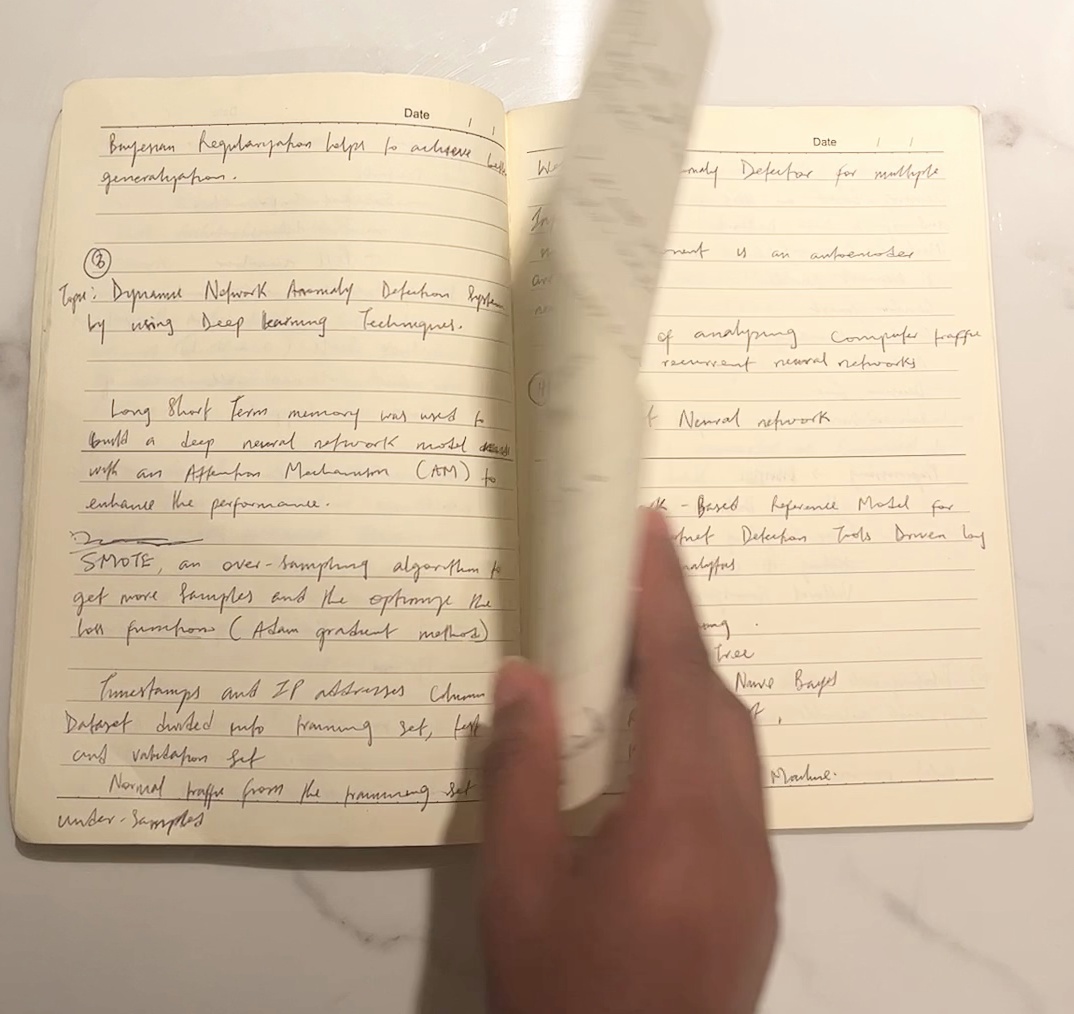 Date / /
Bayesian Regularization helps to achieve
generalization.
3
Topic: Dynamic Network Anomaly Detection System
by using Deep learning Techniques.
Long Short Term memory was used to
build a deep neural network model
with an Attention Mechanism (AM) to
enhance the performance.
SMOTE, an over-sampling algorithm to
get more samples and the optimize the
loss function (Adam gradient method)
Timestamps and IP addresses column
Dataset divided into training set, test
and validation set
Normal traffic from the training set
under-samples
Date / /
Detector for multiple
is an autoencoder
of analyzing Computer traffic
recurrent neural networks
4
Neural network
-Based Reference Model for
Detection Tools Driven by
Tree
Naive Bayes
Machine.